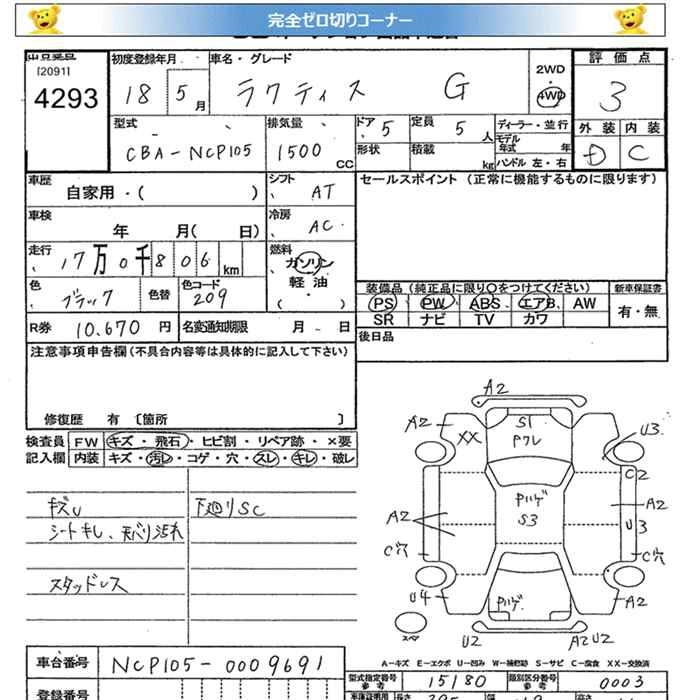 完全ゼロ切りコーナー
[2091]
4293
初度登録年月 18 5 月
車名・グレード ラクティス G
2WD
・
4WD
評価点 3
外装 内装
D C
型式 CBA-NCP105
排気量 1500 CC
ドア 5
定員 5 人
形状 積載 kg
ディーラー・並行
モデル年式 年
ハンドル 左・右
車歴 自家用・( )
シフト AT
セールスポイント (正常に機能するものに限ります)
車検 年 月( 日)
冷房 AC
走行 17万0千806 km
燃料 ガソリン
軽油
・( )
色 ブラック 色替
色コード 209
装備品 (純正品に限り○をつけてください) 新車保証書
PS PW ABS エアB AW
SR ナビ TV カワ
有・無
R券 10,670 円 名変通知期限 月 日
後日品
注意事項申告欄(不具合内容等は具体的に記入して下さい)
修復歴 有 〔箇所 〕
検査員 FW キズ・飛石・ヒビ割・リペア跡・×要
記入欄 内装 キズ・汚レ・コゲ・穴・スレ・キレ・破レ
キズU 下廻りSC
シートキレ、天バリ汚れ
スタッドレス
A2
A2 XX S1 U3
Pワレ
C2
Pハゲ
A2 S3 A2
U3
C穴 C穴
U4 Pハゲ A2
スペア U2 A2 U2
A-キズ E-エクボ U-凹み W-補修跡 S-サビ C-腐食 XX-交換済
車台番号 NCP105-0009691
型式指定番号 参考 15180 類別区分番号 参考 0003
登録番号
車庫証明用 長さ